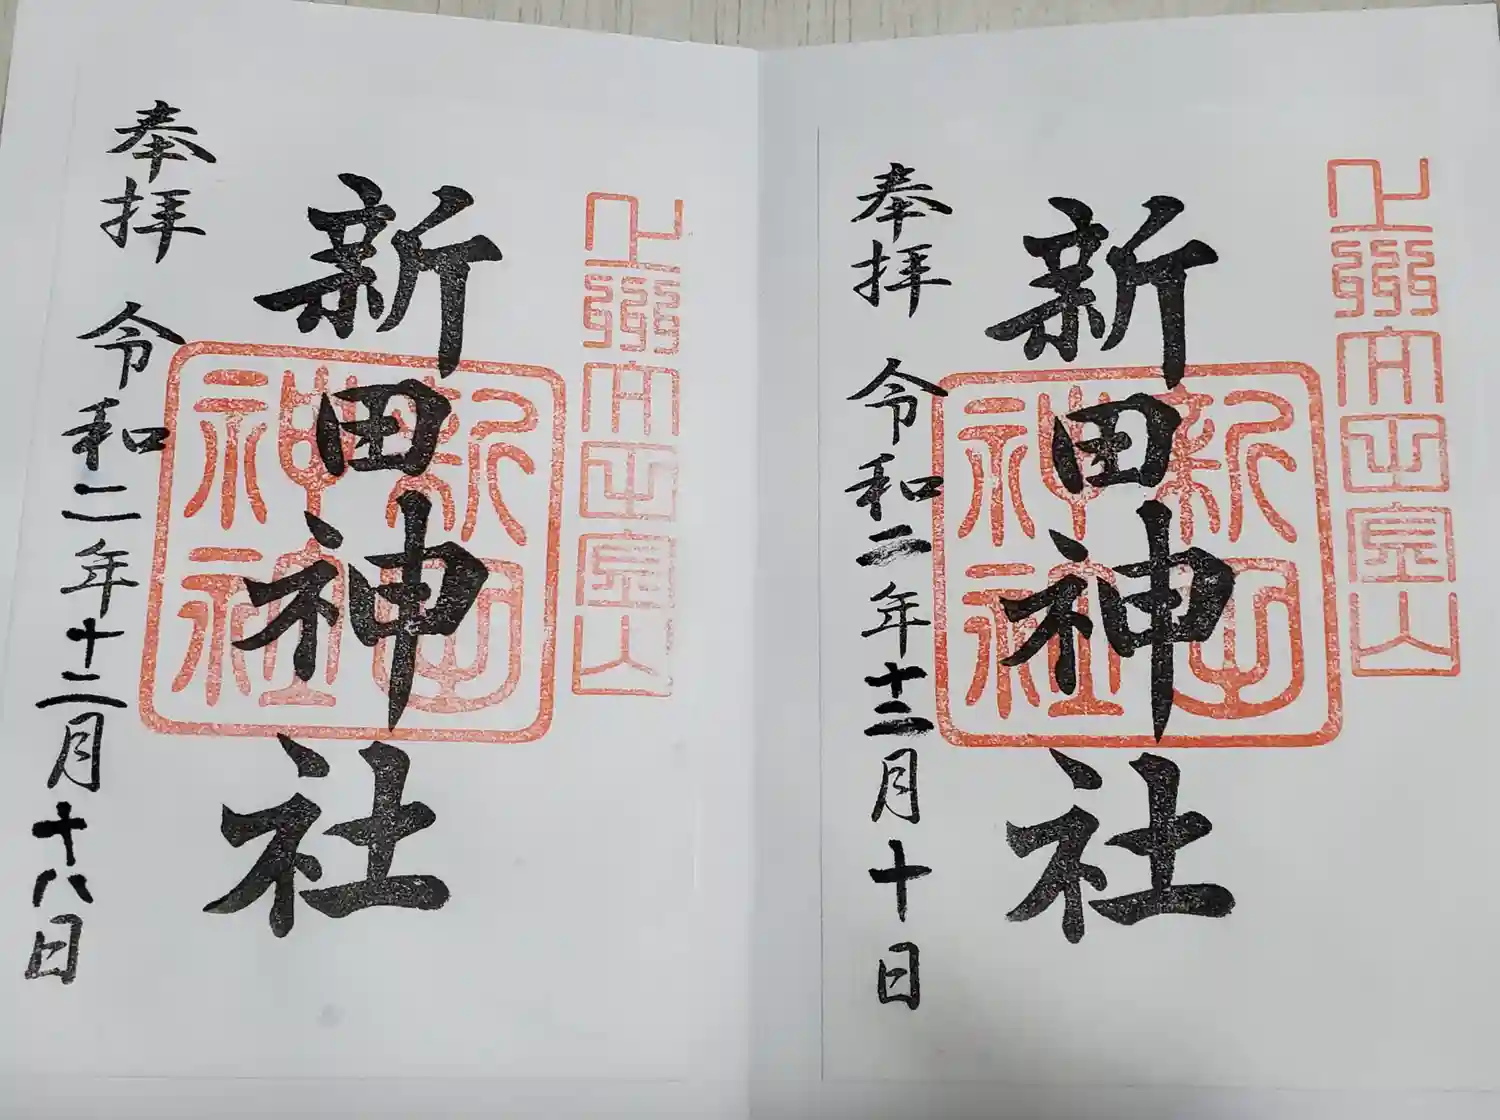 上州太田金山
新田神社
新田
神社
奉拝 令和二年十二月十日
上州太田金山
新田神社
新田
神社
奉拝 令和二年十二月十八日